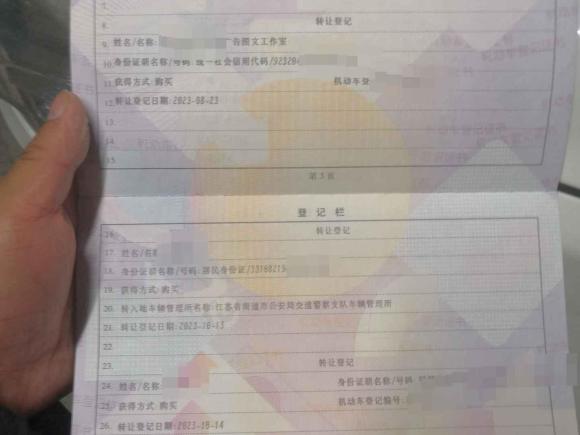 7.
8. 转让登记
9. 姓名/名称: 告图文工作室
10. 身份证明名称/号码: 统一社会信用代码/923204
11. 获得方式: 购买 机动车登
12. 转让登记日期: 2023-08-23
13.
14.
15.
第 3 页
登 记 栏
16. 转让登记
17. 姓名/名
18. 身份证明名称/号码: 居民身份证/3310821
19. 获得方式: 购买
20. 转入地车辆管理所名称: 江苏省南通市公安局交通警察支队车辆管理所
21. 转让登记日期: 2023-10-13
22.
23. 转让登记
24. 姓名/名称 身份证明名称/号码:
25. 获得方式: 购买 机动车登记编号:
26. 转让登记日期: 2023-10-14